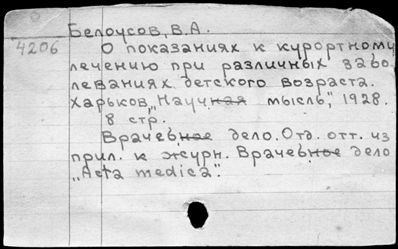 Белоусов, В.А.
4206
О показаниях к курортному
лечению при различных забо
леваниях детского возраста.
Харьков, "Научная мысль", 1928.
8 стр.
Врачебное дело. Отд. отт. из
прил. к журн. Врачебное дело
"Acta medica".